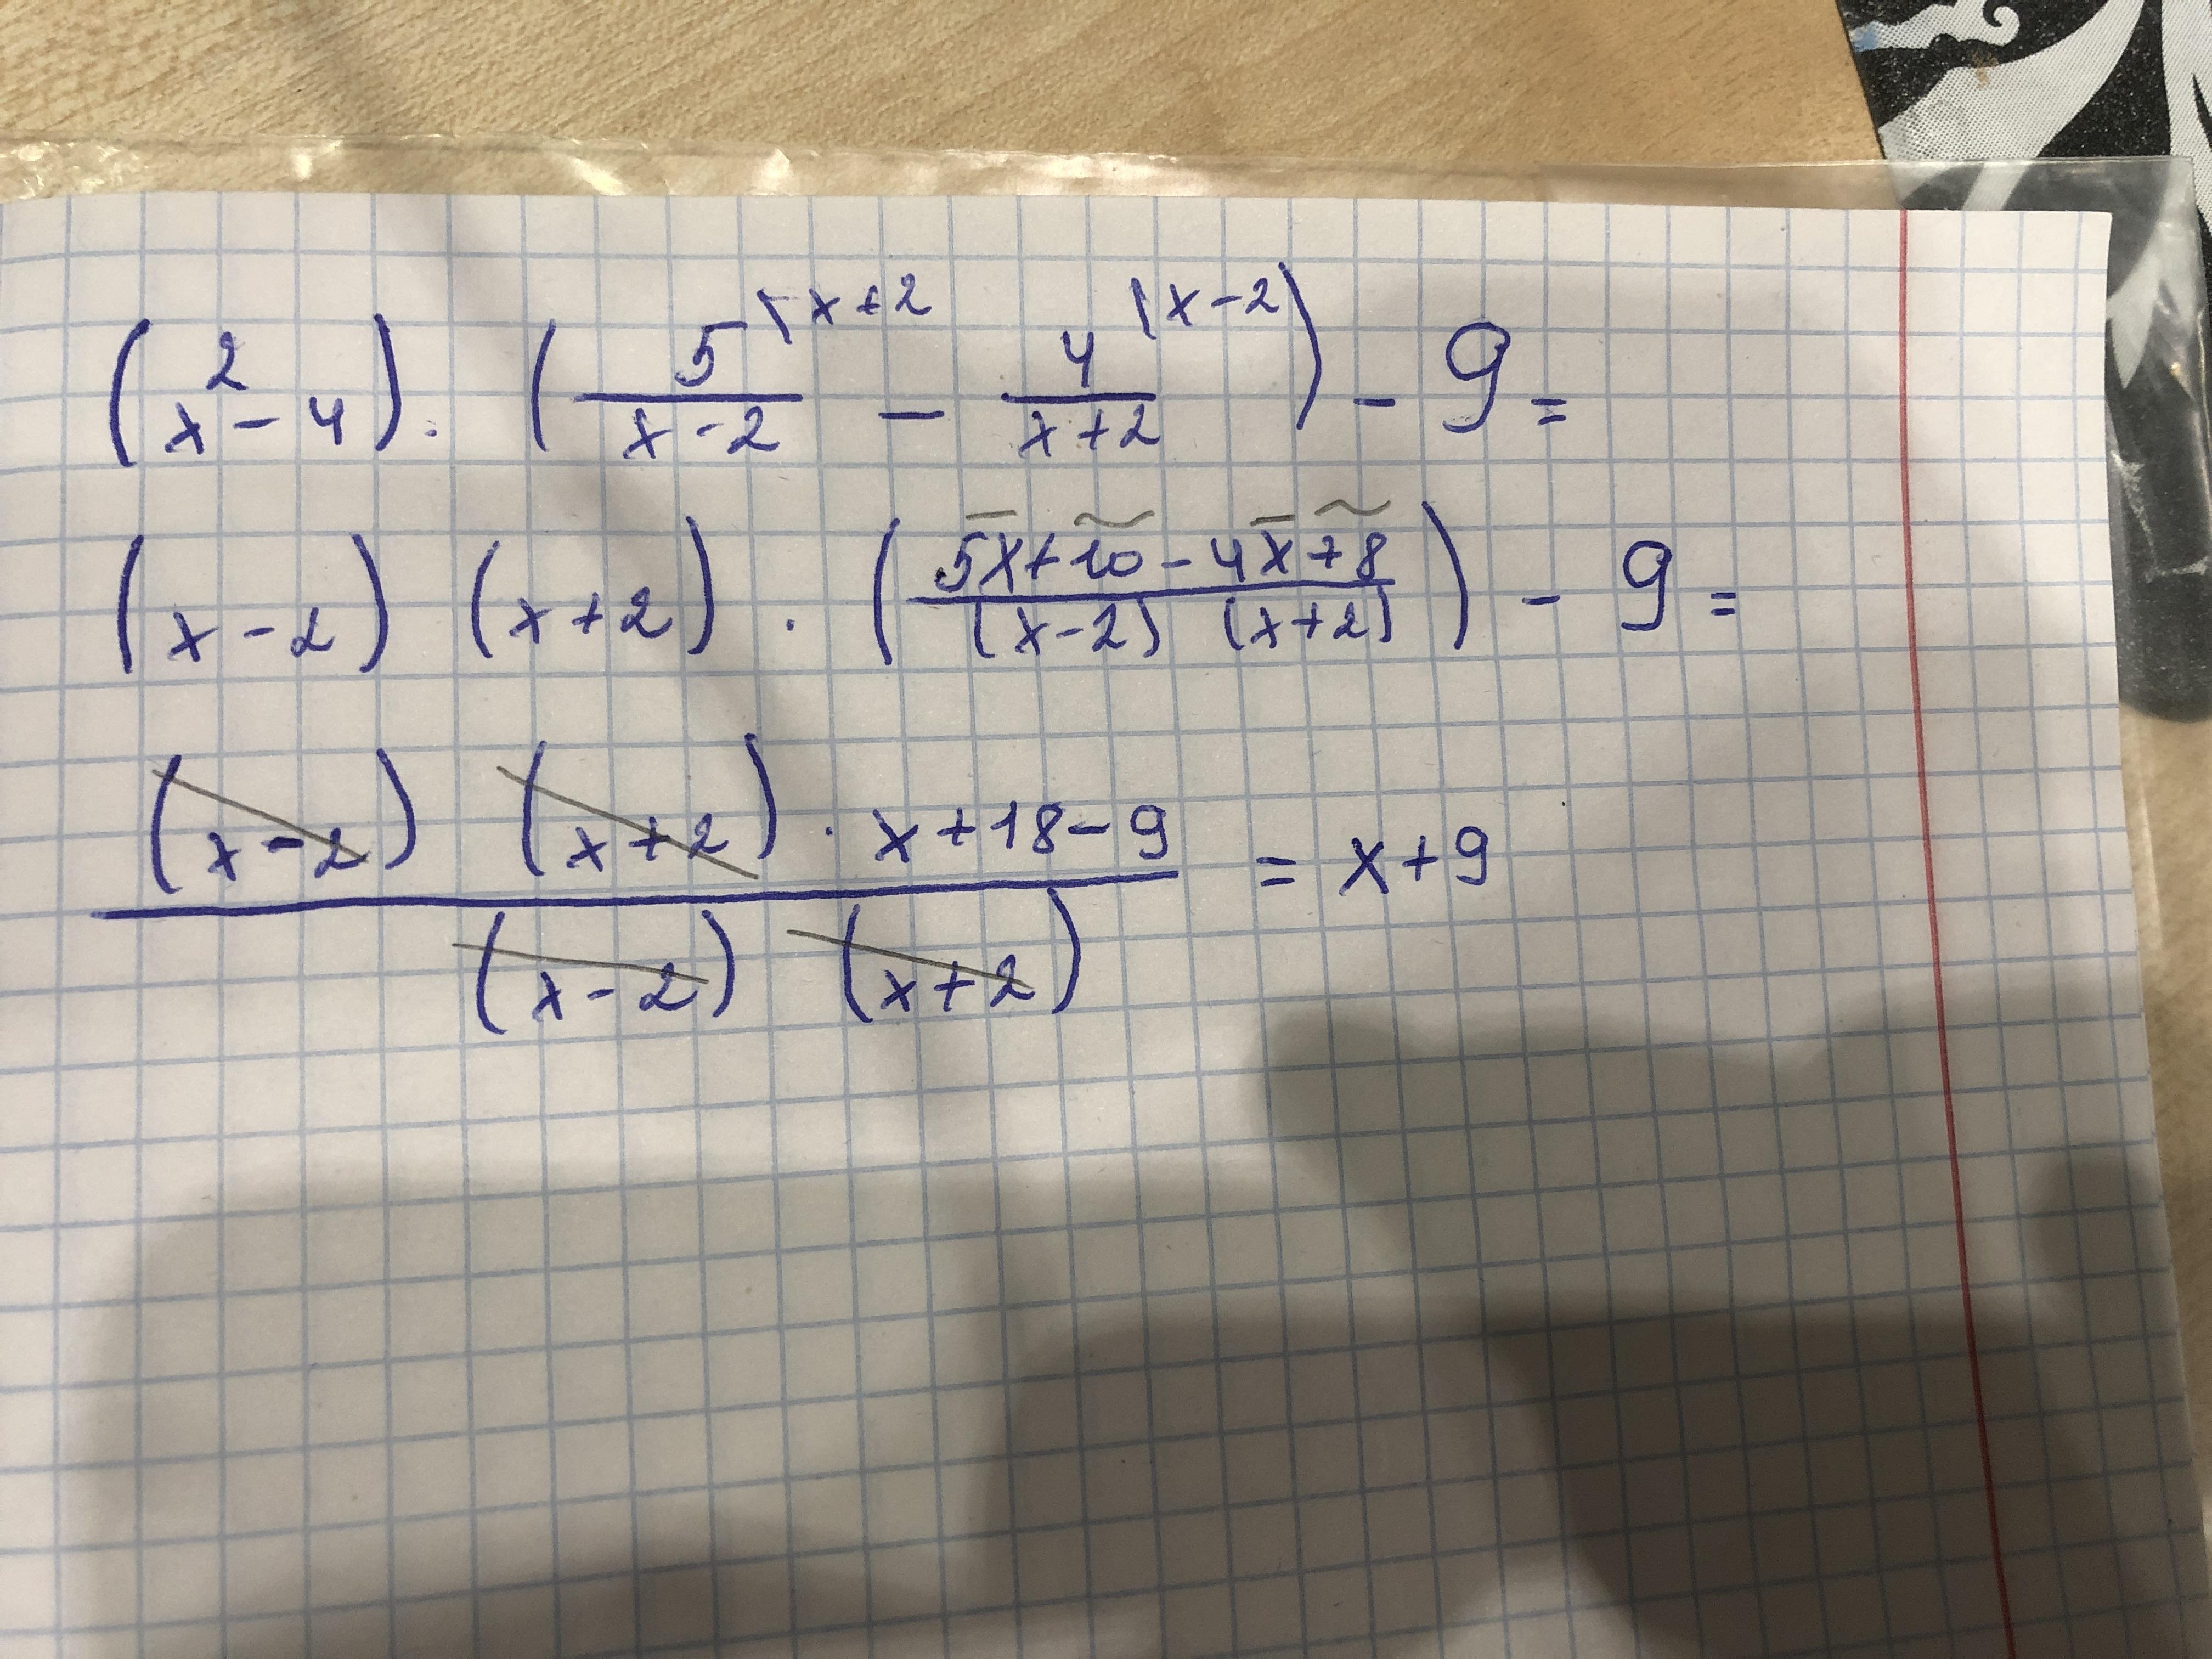 (x² - 4) · (5/(x-2) ^(x+2 - 4/(x+2) ^(x-2) - 9 =
(x-2) (x+2) · ((5x+10-4x+8)/((x-2) (x+2))) - 9 =
((x-2) (x+2) · x+18-9)/((x-2) (x+2)) = x+9